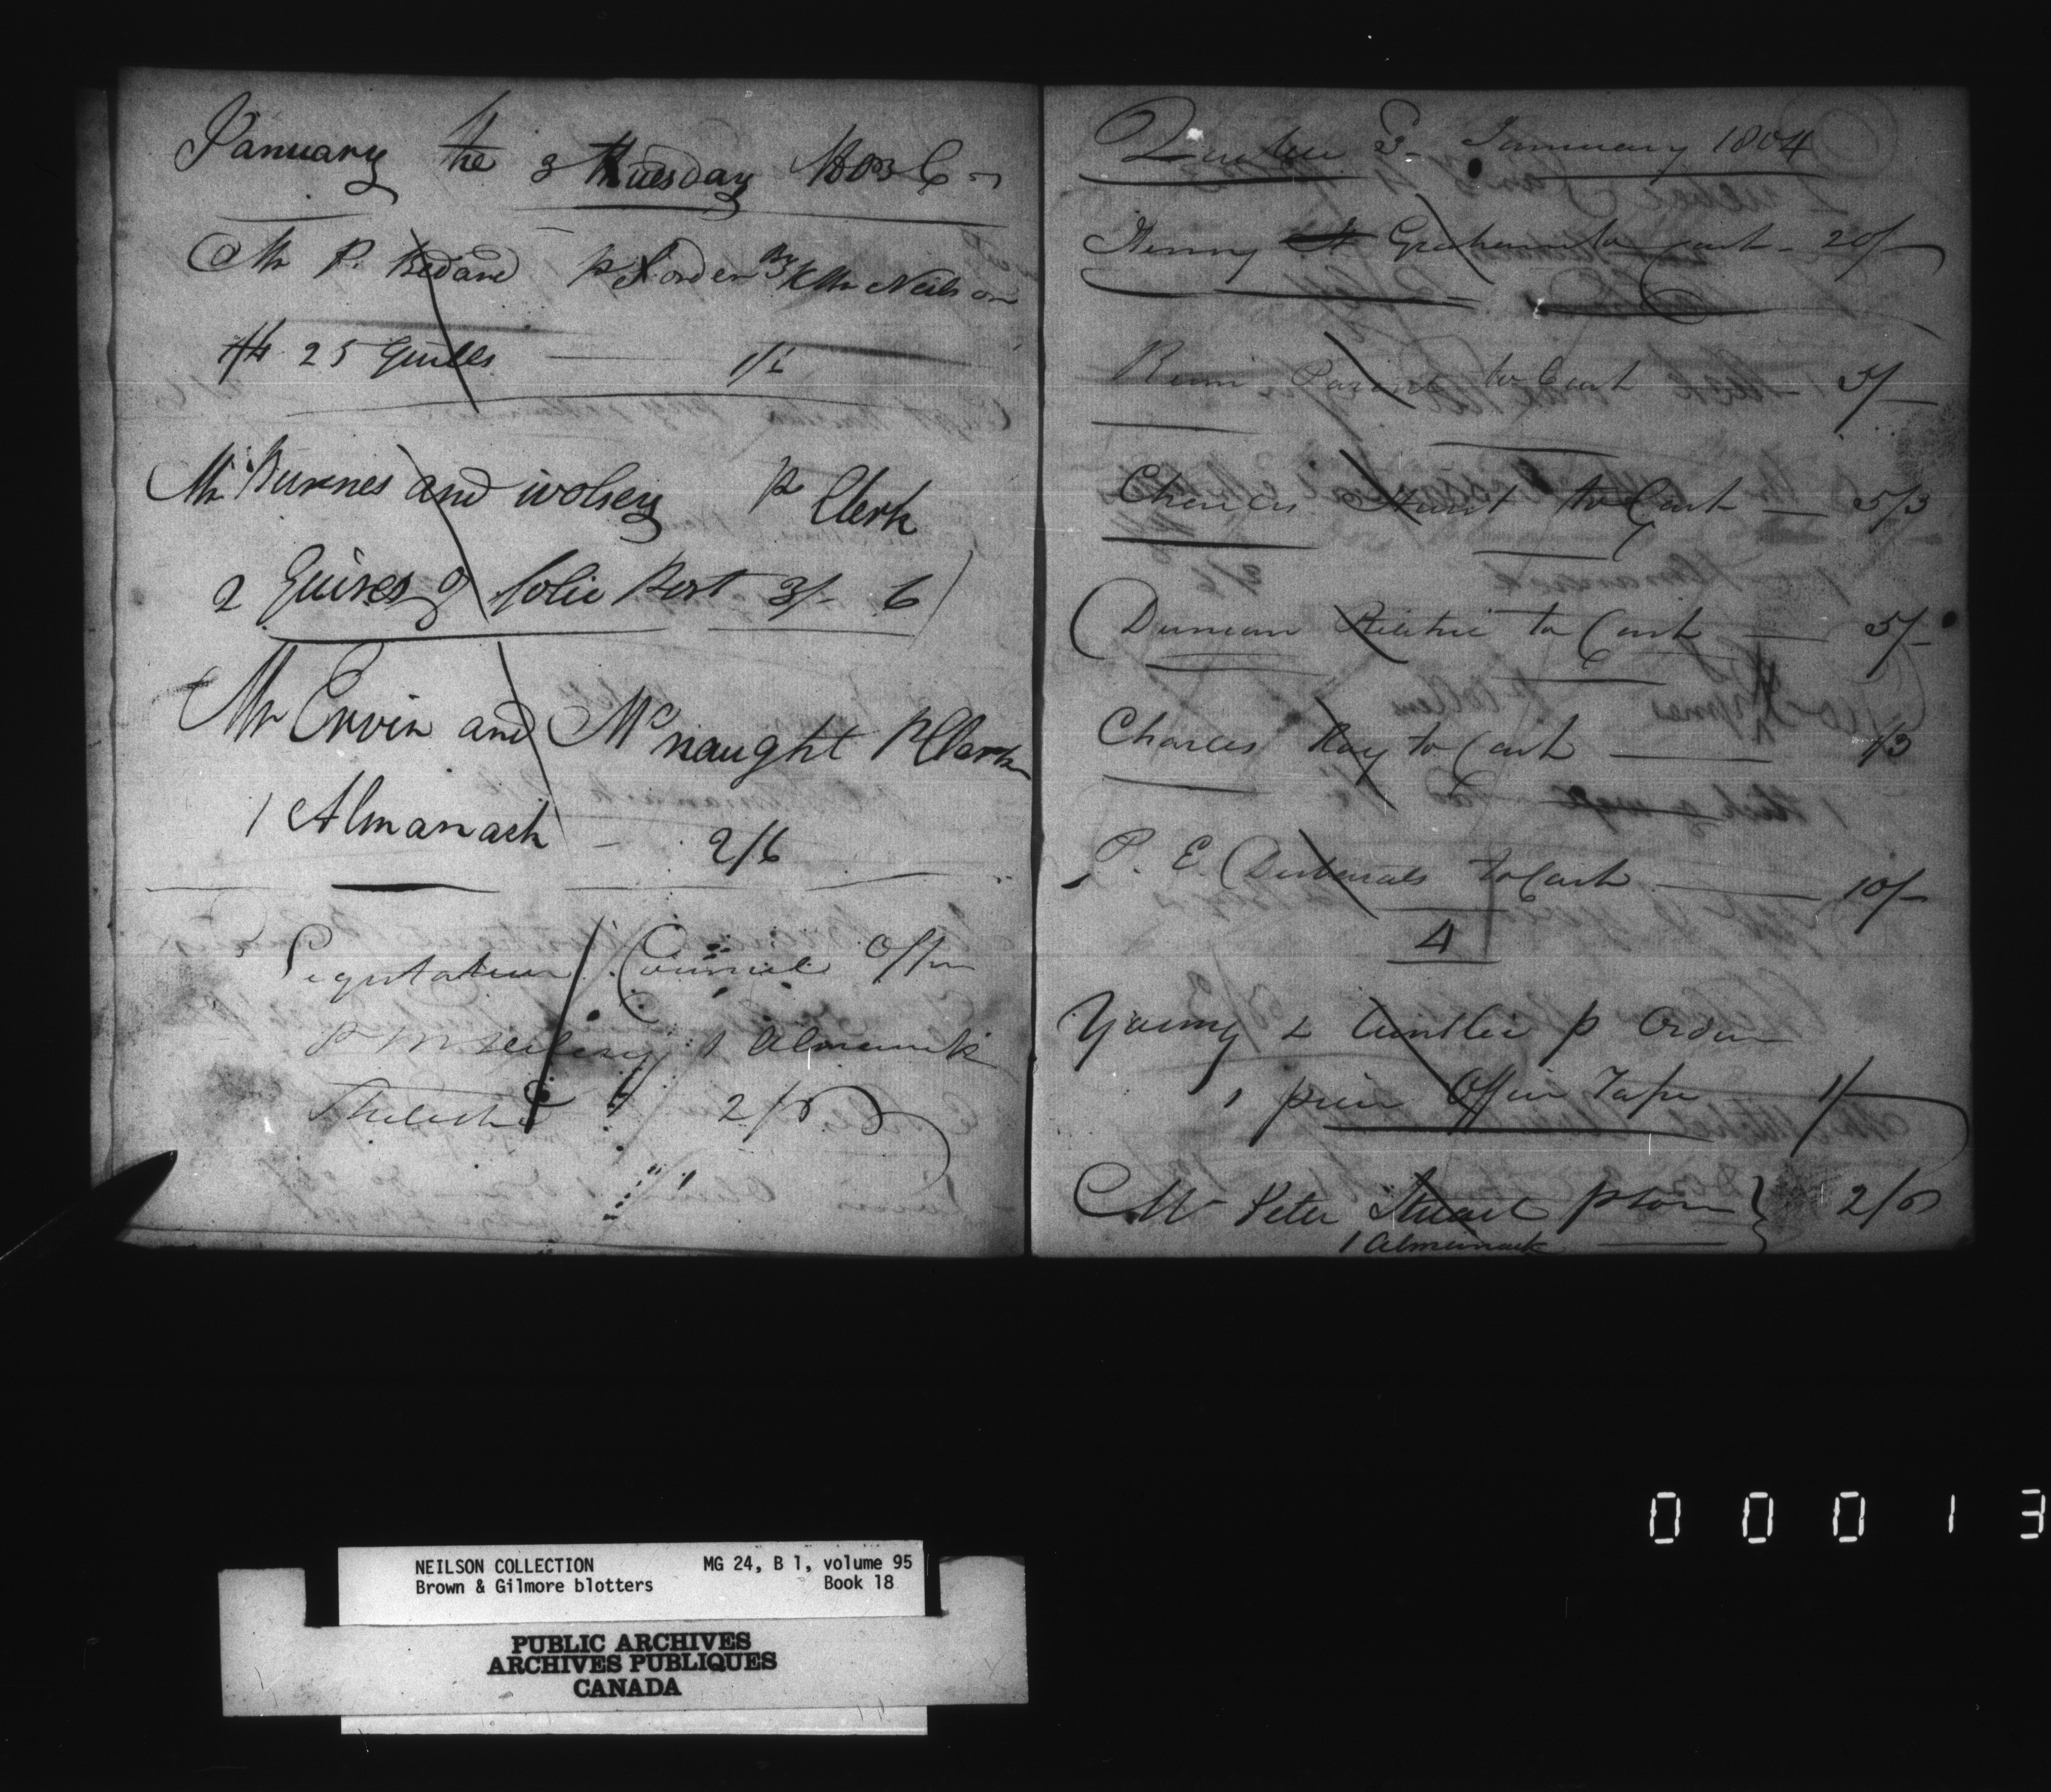 January the 3 Tuesday 1803
Mr P. Bedard p order Mr Neilson
25 Quills 1/6
Mr Burnes and wolsey p Clerk
2 Quires of folio Post 3/- 6
Mr Ervin and Mc naught P Clerk
1 Almanack - 2/6
Council Office
1 Almanack
2/6
Quebec 3 January 1804
Henny Graham to Cash - 20/-
to Cash - 5/-
Charles Hunt to Cash - 5/3
Duncan to Cash - 5/-
Charles Hay to Cash - 1/3
P. E. Desbarats to Cash - 10/-
4
Young & Ainslie p Order
1 piece Office Tape - 1/-
Mr Peter Stuart p Son } 2/6
1 Almanack
0 0 0 1 3
NEILSON COLLECTION MG 24, B 1, volume 95
Brown & Gilmore blotters Book 18
PUBLIC ARCHIVES
ARCHIVES PUBLIQUES
CANADA